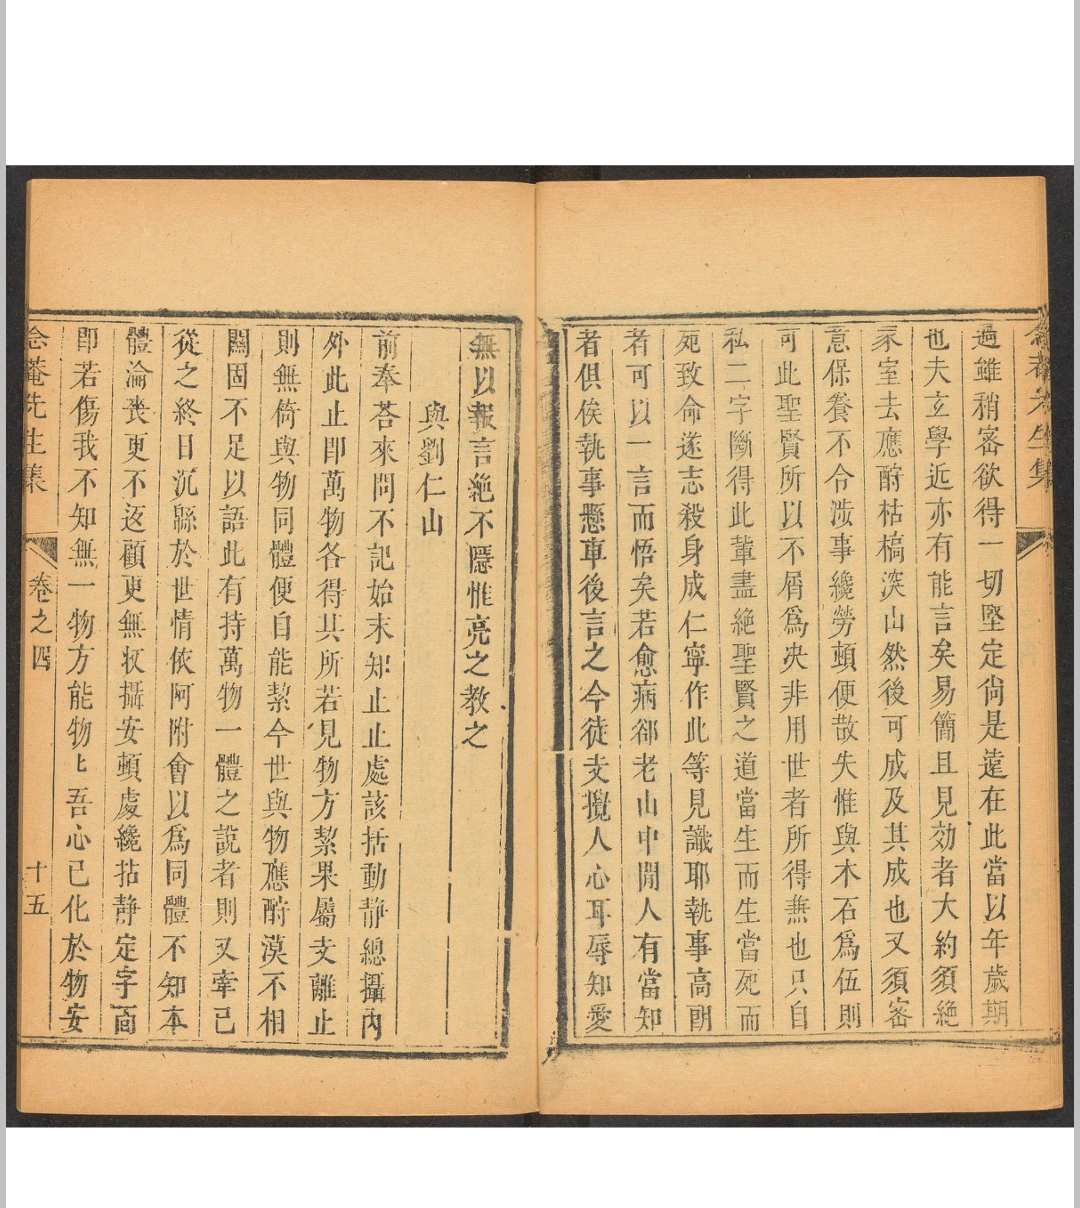 念菴先生集
過雖稍密欲得一切堅定尙是遠在此當以年歲期
也夫立學近亦有能言矣易簡且見効者大約須絶
家室去應酧枯槁深山然後可成及其成也又須密
意保養不合涉事纔勞頓便散失惟與木石爲伍則
可此聖賢所以不屑爲决非用世者所得無也只自
私二字斷得此輩盡絶聖賢之道當生而生當死而
死致命遂志殺身成仁寧作此等見識耶執事高朗
者可以一言而悟矣若愈病郤老山中閒人有當知
者俱俟執事懸車後言之今徒支攪人心耳辱知愛
無以報言絶不隱惟亮之教之
與劉仁山
前奉荅來問不記始末知止止處該括動静總攝內
外此止卽萬物各得其所若見物方絜果屬支離止
則無倚與物同體便自能絜今世與物應酧漠不相
關固不足以語此有持萬物一體之說者則又牽己
從之終日沉緜於世情依阿附會以爲同體不知本
體淪喪更不返顧更無收攝安頓處纔拈静定字面
卽若傷我不知無一物方能物匕吾心已化於物安
念菴先生集
卷之四
十五